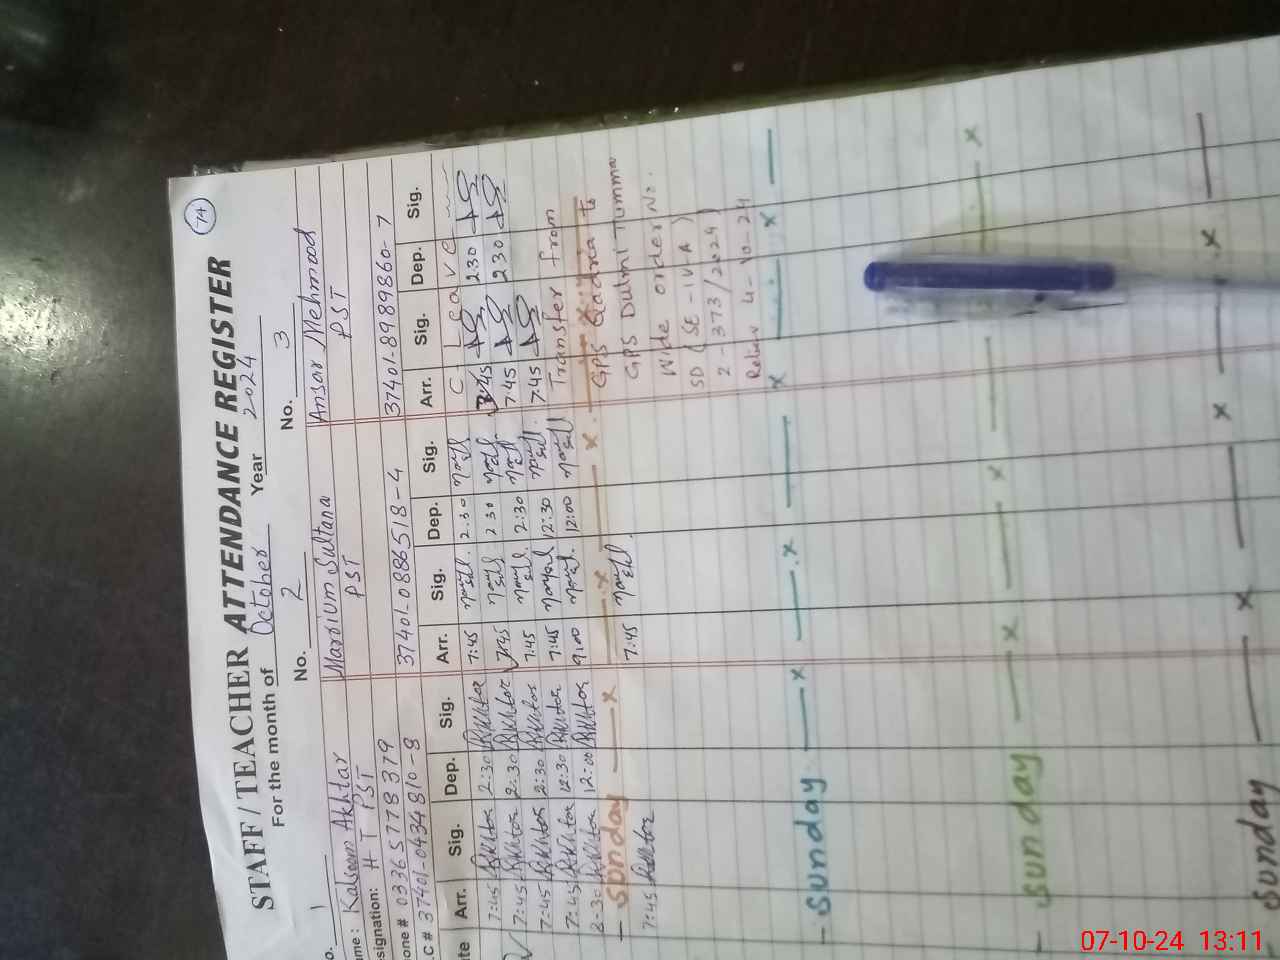 74
STAFF / TEACHER ATTENDANCE REGISTER
For the month of October Year 2024
o. 1 No. 2 No. 3
ame : Kalsoom Akhtar Mardium Sultana Ansar Mehmood
esignation: H T PST PST PST
one # 03365778379
.C # 37401-0434810-8 37401-0886518-4 37401-8989860-7
te Arr. Sig. Dep. Sig. Arr. Sig. Dep. Sig. Arr. Sig. Dep. Sig.
7:45 Akhtar 2:30 Akhtar 7:45 2.30 C - Leave
7:45 Akhtar 2:30 Akhtar 7:45 2 30 7:45 2.30
7:45 Akhtar 2:30 Akhtar 7:45 2:30 7.45 2 30
7:45 Akhtar 12:30 Akhtar 7:45 12:30 7:45
8-30 Akhtar 12:00 Akhtar 9:00 12:00 Transfer from
- Sunday — x — x — x GPS Qadria to
7:45 Akhtar 7:45 GPS Dulmi Tumma
Wide order No.
SD (SE-IV-A)
2-373/2024)
Reliev 4-10-24
- Sunday — x — x — x — x —
- Sunday — x — x — x — x
Sunday — x — x — x —
07-10-24 13:11